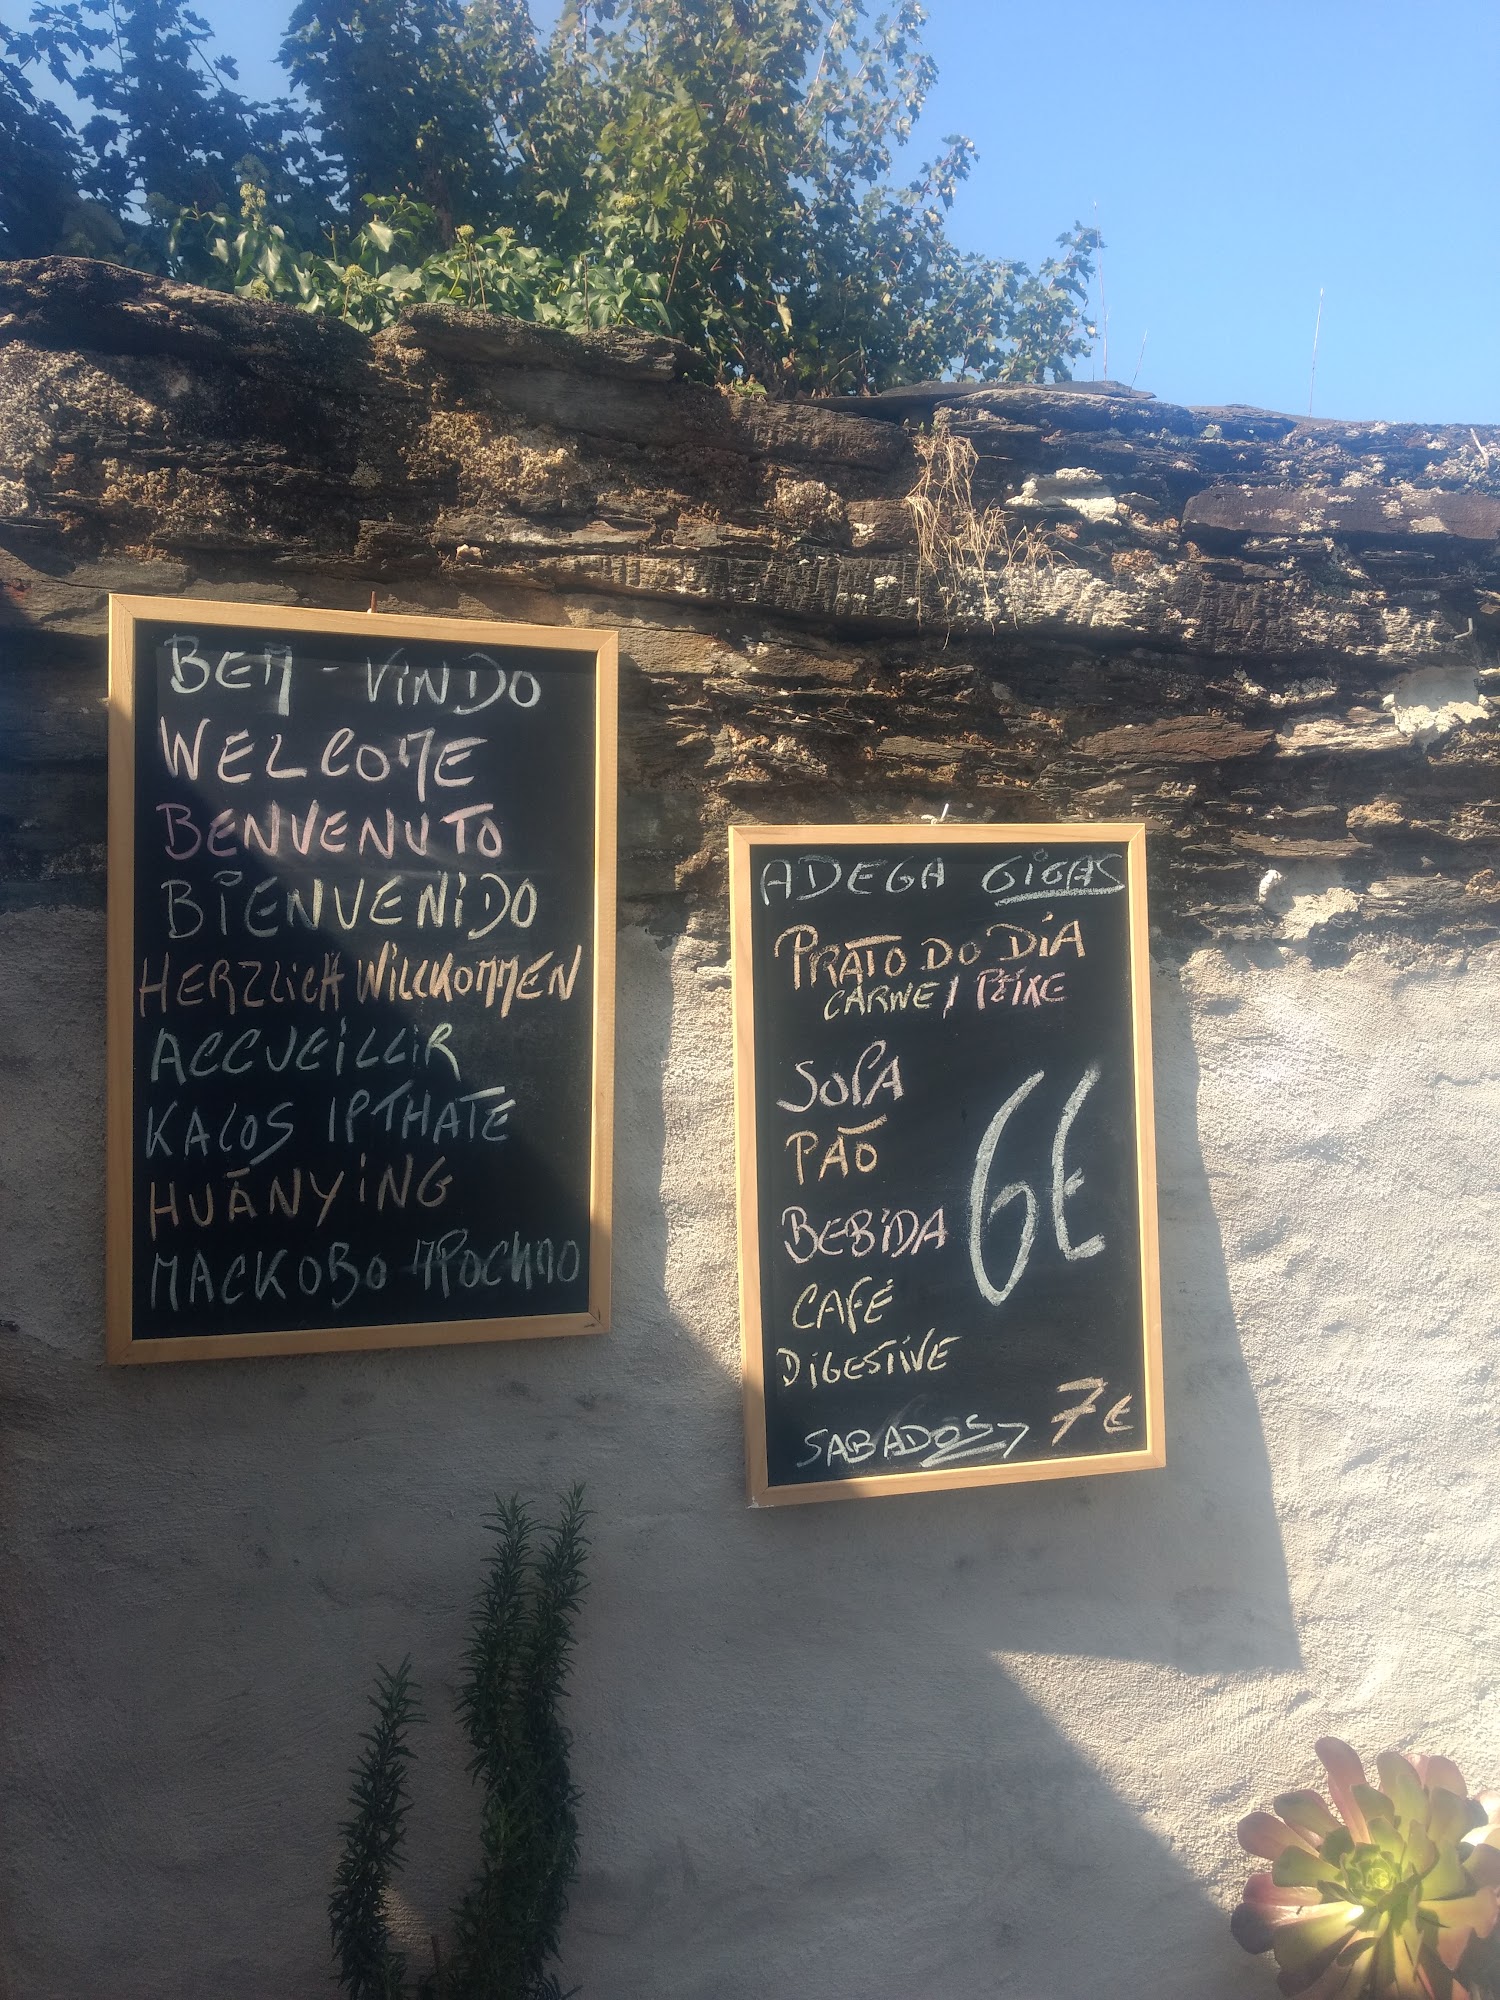 BEM - VINDO
WELCOME
BENVENUTO
BIENVENIDO
HERZLICH WILLKOMMEN
ACCUEILLIR
KALOS IPTHATE
HUĀNYING
MACKOBO ПРОСИПО
ADEGA GIGAS
PRATO DO DIA
CARNE / PEIXE
SOPA
PÃO
BEBIDA
6€
CAFÉ
DIGESTIVE
SABADOS 7€